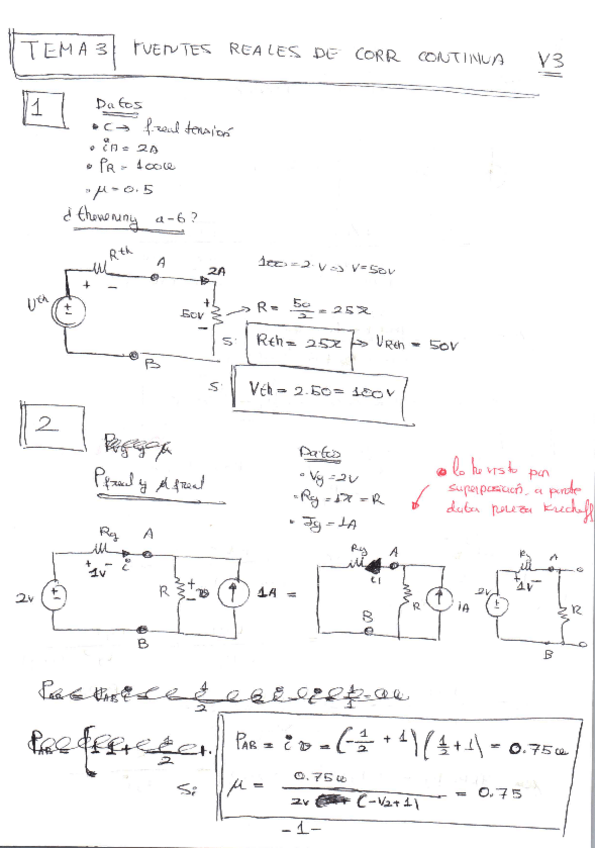 TEMA 3 FUENTES REALES DE CORR CONTINUA V3
1
Datos
• C → freal tensión
• in = 2A
• PR = 100w
• μ = 0.5
d thevening a-b?
Rth
A
2A
+
-
Vth
+
50V
-
B
100 = 2·V ⇒ V = 50V
→ R = 50/2 = 25Ω
S: Rth = 25Ω → VRth = 50V
S: Vth = 2.50 = 100V
2
Pfreal y μ freal
Datos
• Vg = 2V
• Rg = 1Ω = R
• Ig = 1A
• lo he visto por
superposición, a parte
daba pereza Kirchoff
Rg
A
+ 1V -
i
2V
R
+ v -
1A =
B
Rg
A
i1
R
1A
B
Rg
A
+ 1V -
2V
R
B
PAB = i v = (-1/2 + 1) (1/2 + 1) = 0.75w
S: μ = 0.75w / 2V (-1/2+1) = 0.75
-1-